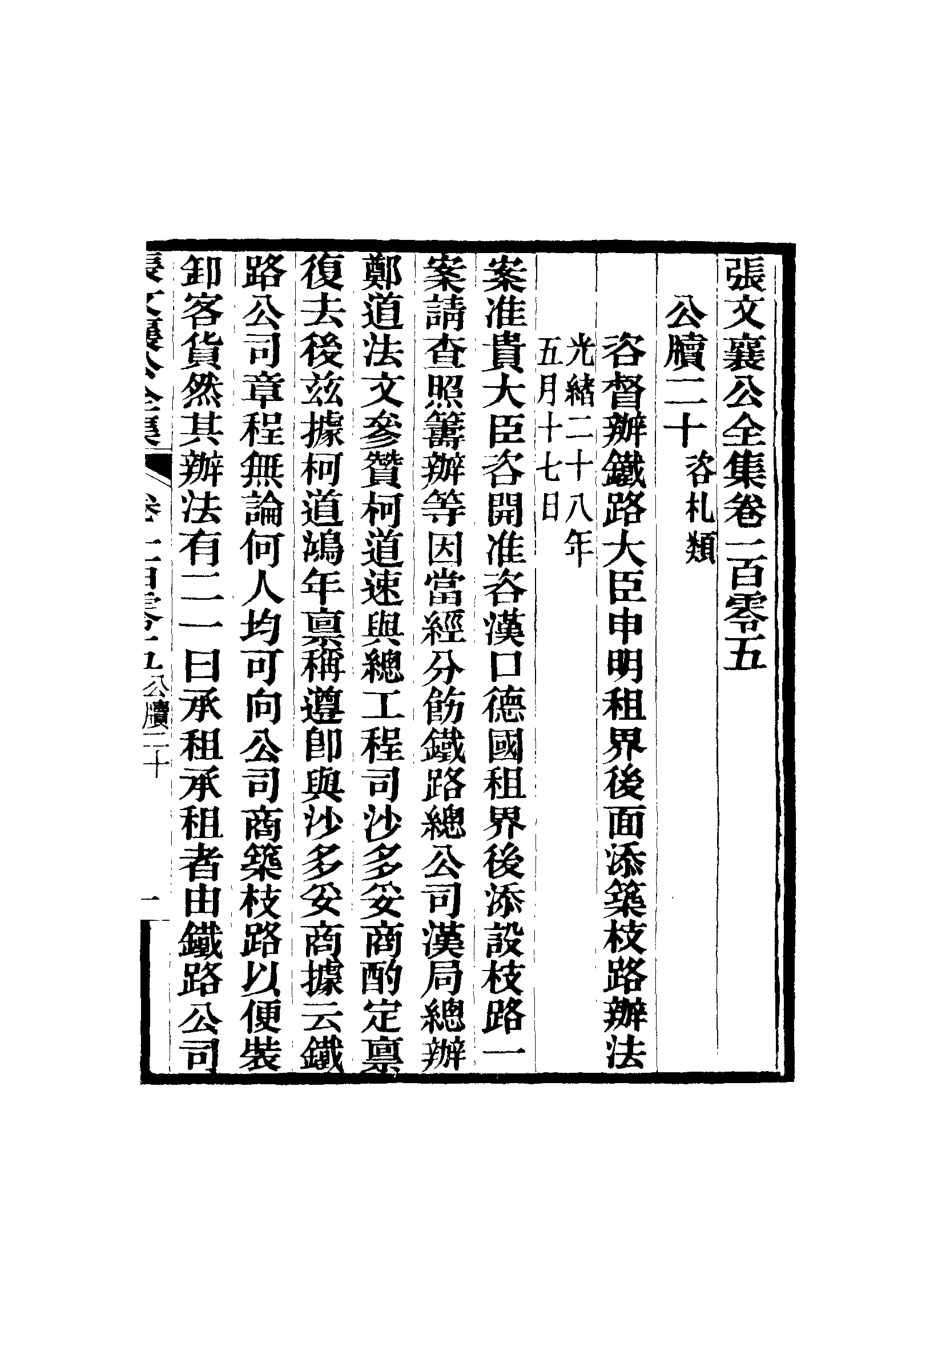 張文襄公全集卷一百零五
公牘二十咨札類
咨督辦鐵路大臣申明租界後面添築枝路辦法
光緒二十八年
五月十七日
案准貴大臣咨開准咨漢口德國租界後添設枝路一
案請查照籌辦等因當經分飭鐵路總公司漢局總辦
鄭道法文參贊柯道速與總工程司沙多妥商酌定稟
復去後茲據柯道鴻年稟稱遵卽與沙多妥商據云鐵
路公司章程無論何人均可向公司商築枝路以便裝
卸客貨然其辦法有二一曰承租承租者由鐵路公司
張文襄公全集 卷一百零五 公牘二十 一